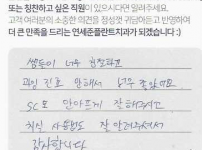 또는 칭찬하고 싶은 직원이 있으시다면 알려주세요.
고객 여러분의 소중한 의견을 정성껏 귀담아듣고 반영하여
더 큰 만족을 드리는 연세준플란트치과가 되겠습니다 :)
쌤들이 너무 친절하고
과잉 진료 안해서 너무 좋았어요
SC도 안아프게 잘해주시고
치실 사용법도 잘 알려주셔서
감사합니다